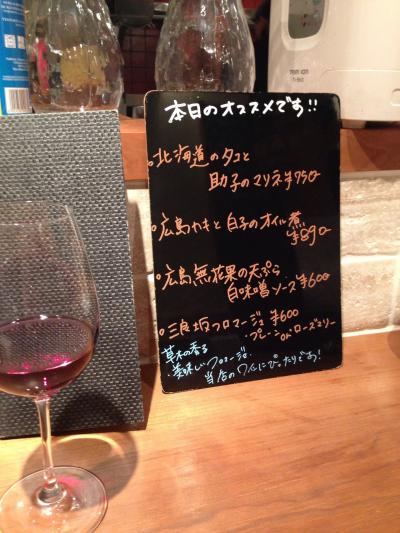 本日のオススメです!!
・北海道のタコと
助子のマリネ ¥750-
・広島カキと白子のオイル煮
¥890-
・広島無花果の天ぷら
白味噌ソース ¥600
・三良坂フロマージュ ¥600
・プレーン or ローズマリー
草木の香る
美味しいフロマージュ。
当店のワインにぴったりです!